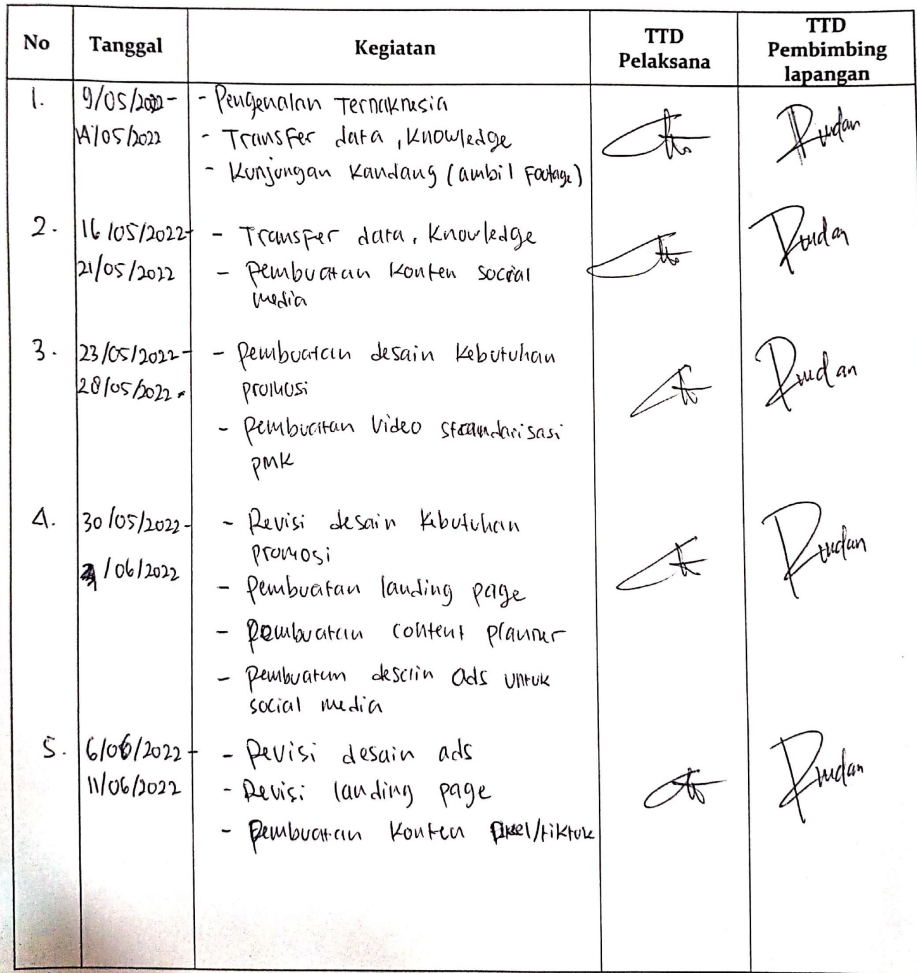 No Tanggal Kegiatan TTD Pelaksana TTD Pembimbing lapangan
1. 9/05/2022 - - Pengenalan Ternaknesia
14/05/2022 - Transfer data, Knowledge
- Kunjungan Kandang (ambil Footage)
Rudan
2. 16/05/2022 - - Transfer data, Knowledge
21/05/2022 - Pembuatan Konten social
media
Rudan
3. 23/05/2022 - - Pembuatan desain Kebutuhan
28/05/2022. promosi
- Pembuatan Video standarisasi
PMK
Rudan
4. 30/05/2022 - - Revisi desain Kebutuhan
promosi
/06/2022 - Pembuatan landing page
- Pembuatan content planner
- Pembuatan desain ads untuk
social media
Rudan
5. 6/06/2022 - - Revisi desain ads
11/06/2022 - Revisi landing page
- Pembuatan Konten reel/tiktok
Rudan